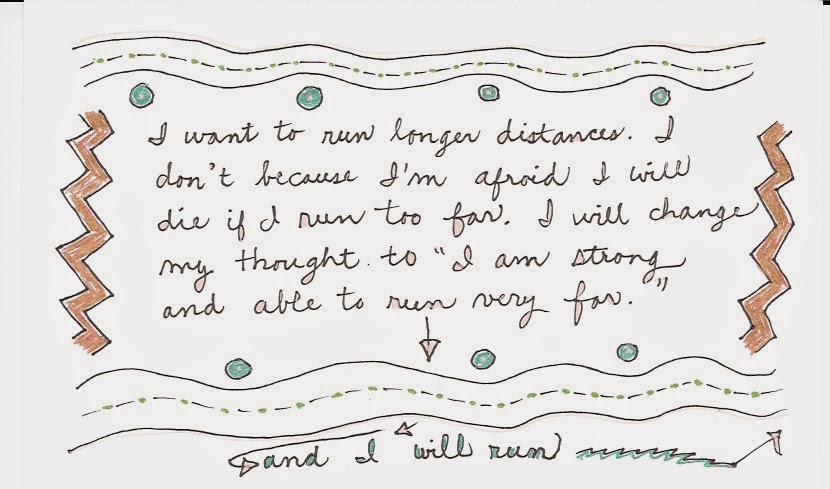 I want to run longer distances. I
don't because I'm afroid I will
die if I run too far. I will change
my thought to "I am strong
and able to run very far."
and I will run